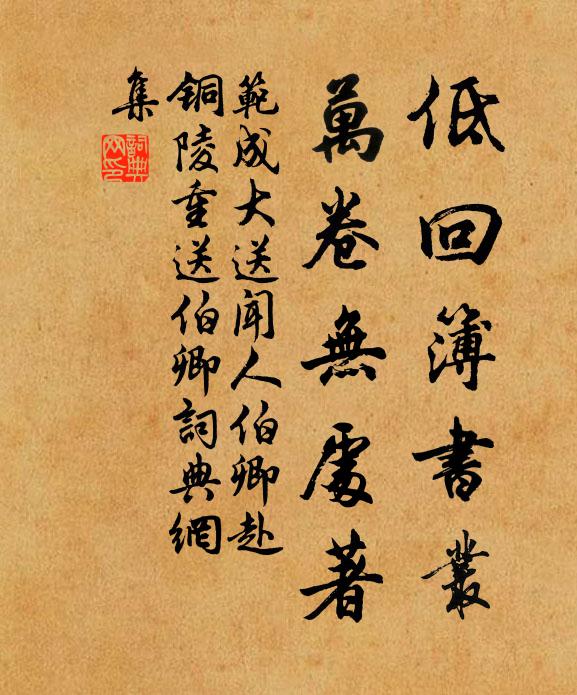 低回簿書叢
萬卷無處著
範成大送聞人伯卿赴
銅陵重送伯卿詞典網
集
詞典网印